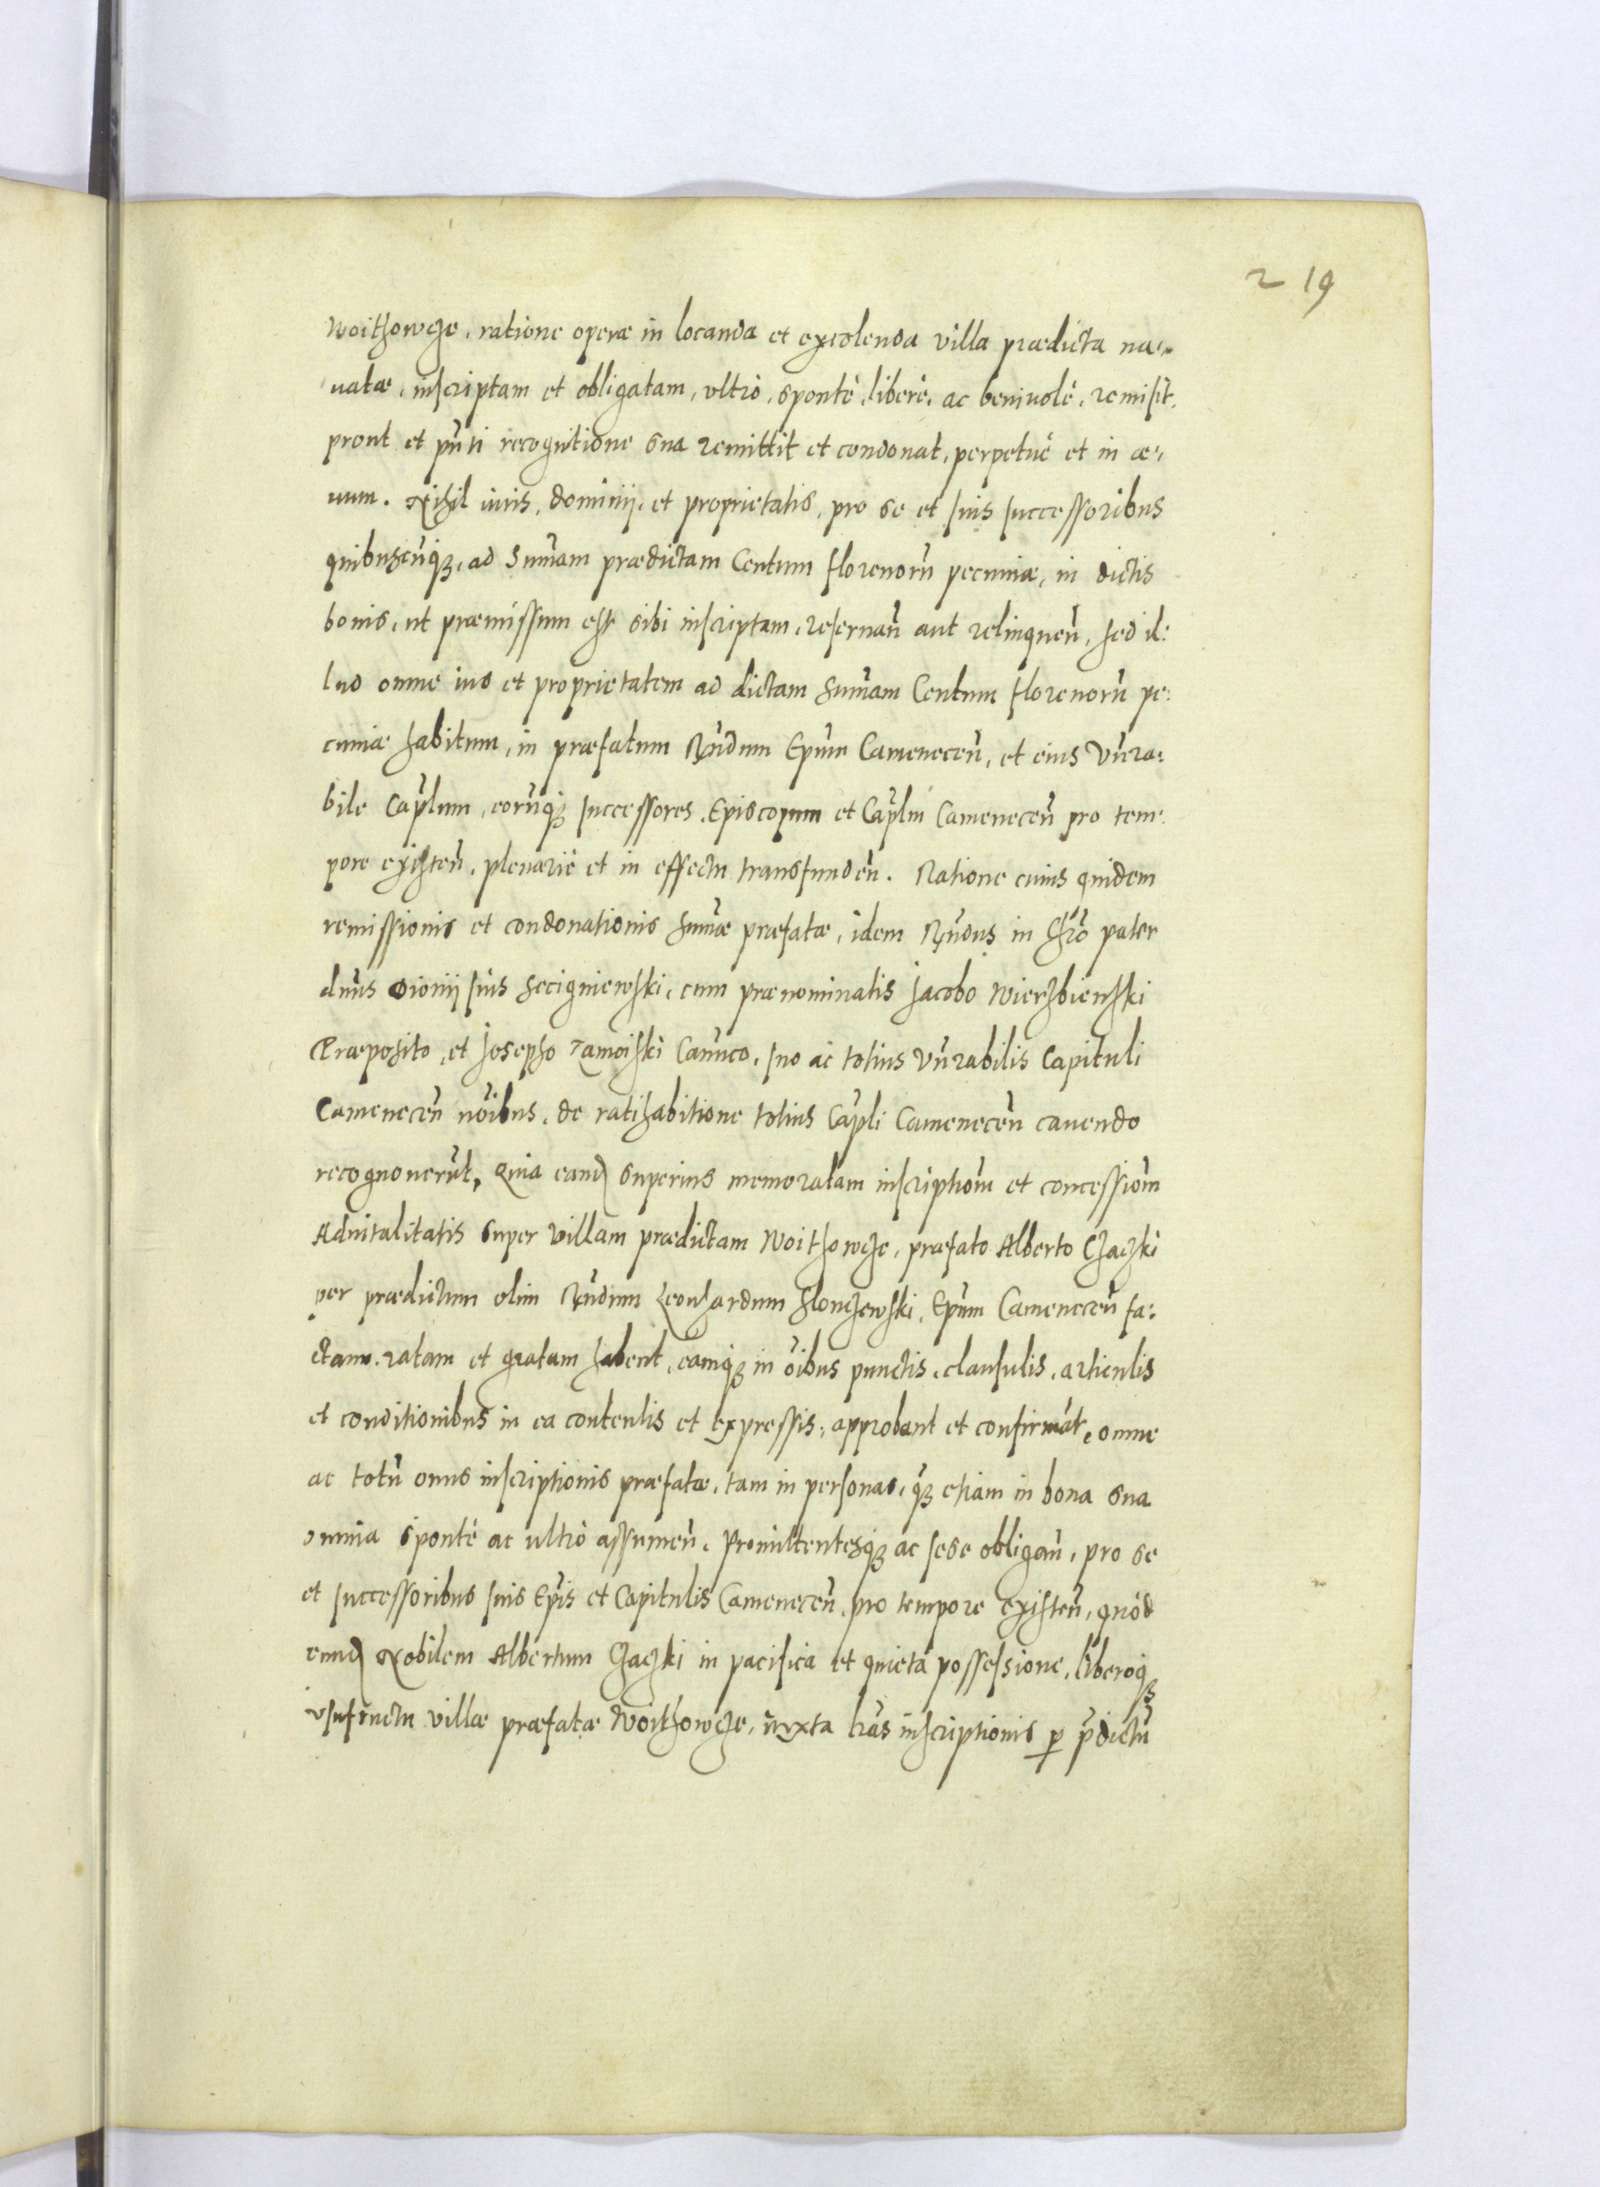 219
Woithowcze, ratione operæ in locanda et excolenda villa prædicta na-
uatæ, inscriptam et obligatam, vltrò, spontè, liberè, ac beniuolè, remisit,
prout et pñti recognitione sua remittit et condonat, perpetuè et in æ-
uum. Nihil iuris, dominij, et proprietatis, pro se et suis successoribus
quibuscũqꝫ, ad Sum̃am prædictam Centum florenorũ pecuniæ, in dictis
bonis, ut præmissum est sibi inscriptam, reseruañ aut relinqueñ, sed il-
lud omne ius et proprietatem ad dictam sum̃am Centum florenorũ pe-
cuniæ habitum, in præfatum Rñdum Ep̃um Cameneceñ, et eius Vñra-
bile Cap̃lum, eorũqꝫ successores Episcopum et Cap̃lm Cameneceñ pro tem-
pore existeñ, plenariè et in effectu transfundeñ. Ratione cuius quidem
remissionis et condonationis sum̃æ præfatæ, idem Rñdus in Chr̃o pater
dñus Dionijsius Secigniewski, cum prænominatis Jacobo Wierzbienski
Præposito, et Josepho Zamoiski Cañnco, suo ac totius Vñrabilis Capituli
Cameneceñ nõibus, de ratihabitione totius Cap̃li Cameneceñ cauendo
recognouerũt, Quia eand superius memoratam inscriptiom̃ et concessiom̃
Aduitalitatis super villam prædictam Woithowcze, præfato Alberto Czaczki
per prædictum olim Rñdum Leonhardum Slonczewski, Ep̃um Cameneceñ fa-
ctam, ratam et gratam habent, eamqꝫ in õibus punctis, clausulis, articulis
et conditionibus in ea contentis et expressis, approbant et confirmãt, omne
ac totũ onus inscriptionis præfatæ, tam in personas, q̃ꝫ etiam in bona sua
omnia spontè ac ultrò assumeñ. Promittentesqꝫ ac sese obligañ, pro se
et successoribus suis Ep̃is et Capitulis Cameneceñ pro tempore existeñ, quòd
eund Nobilem Albertum Czaczki in pacifica et quieta possessione, liberoqꝫ
vsufructu villæ præfatæ Woithowcze, iuxta lr̃as inscriptionis ꝑ p̃dictũ